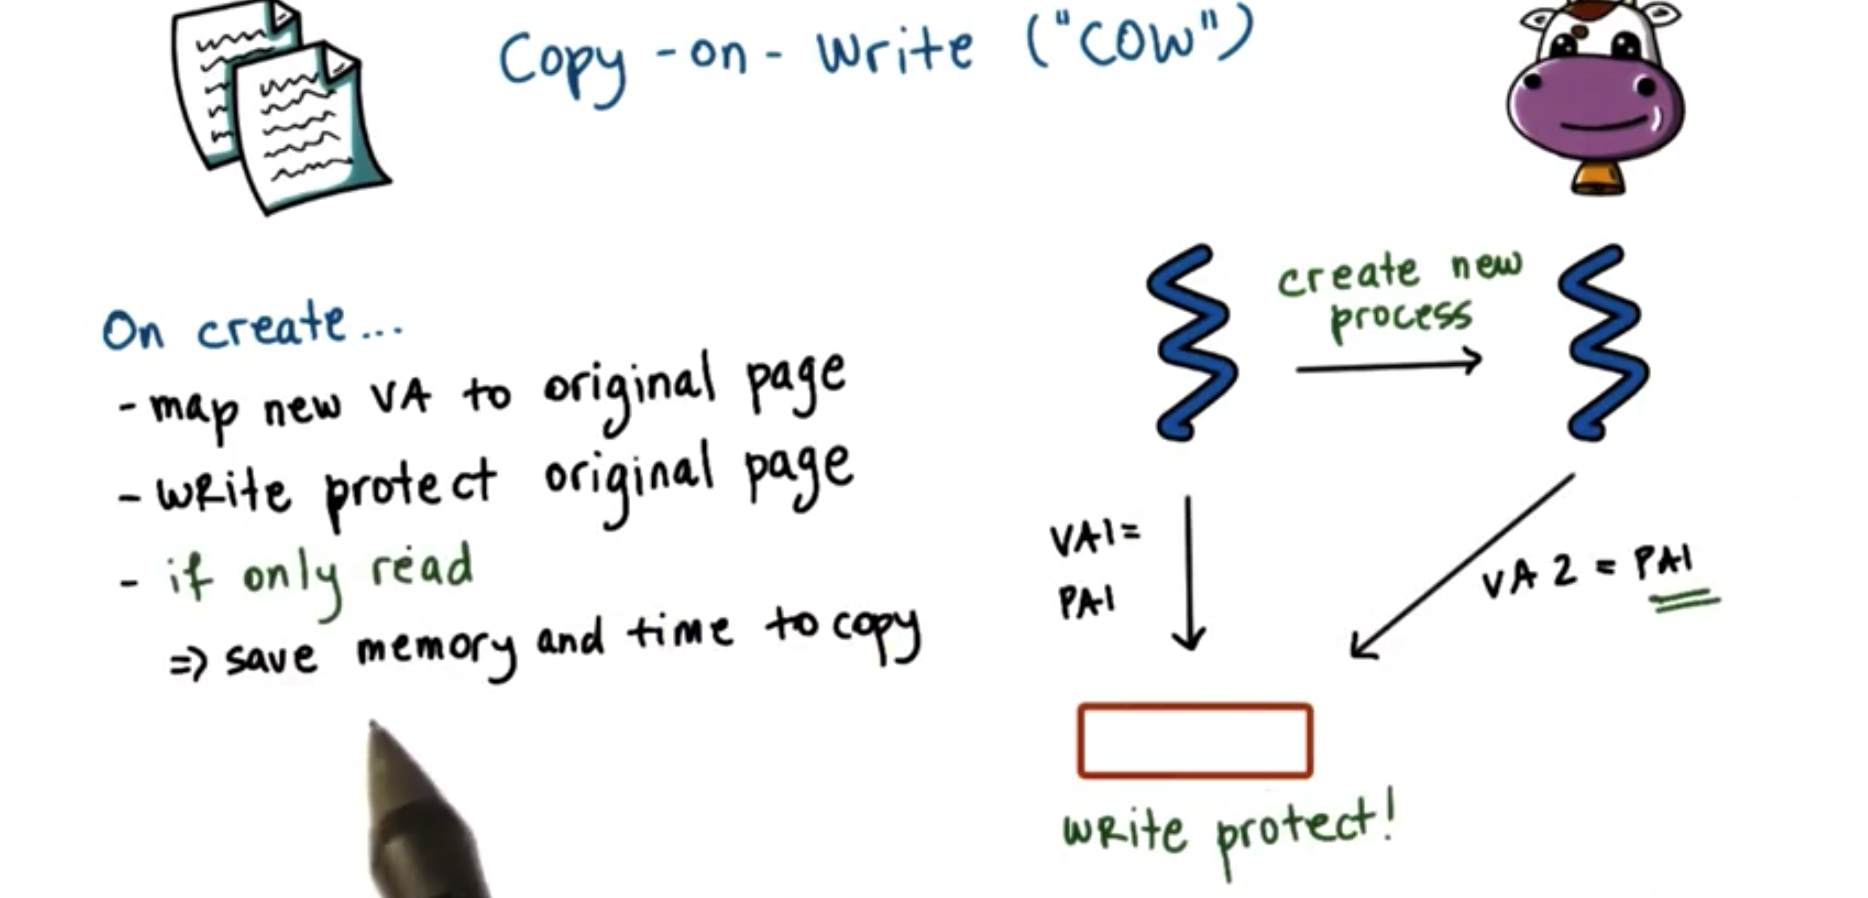 Copy-on-Write ("COW")
On create...
- map new VA to original page
- write protect original page
- if only read
=> save memory and time to copy
create new
process
VA1=
PA1
VA 2 = PA1
write protect!